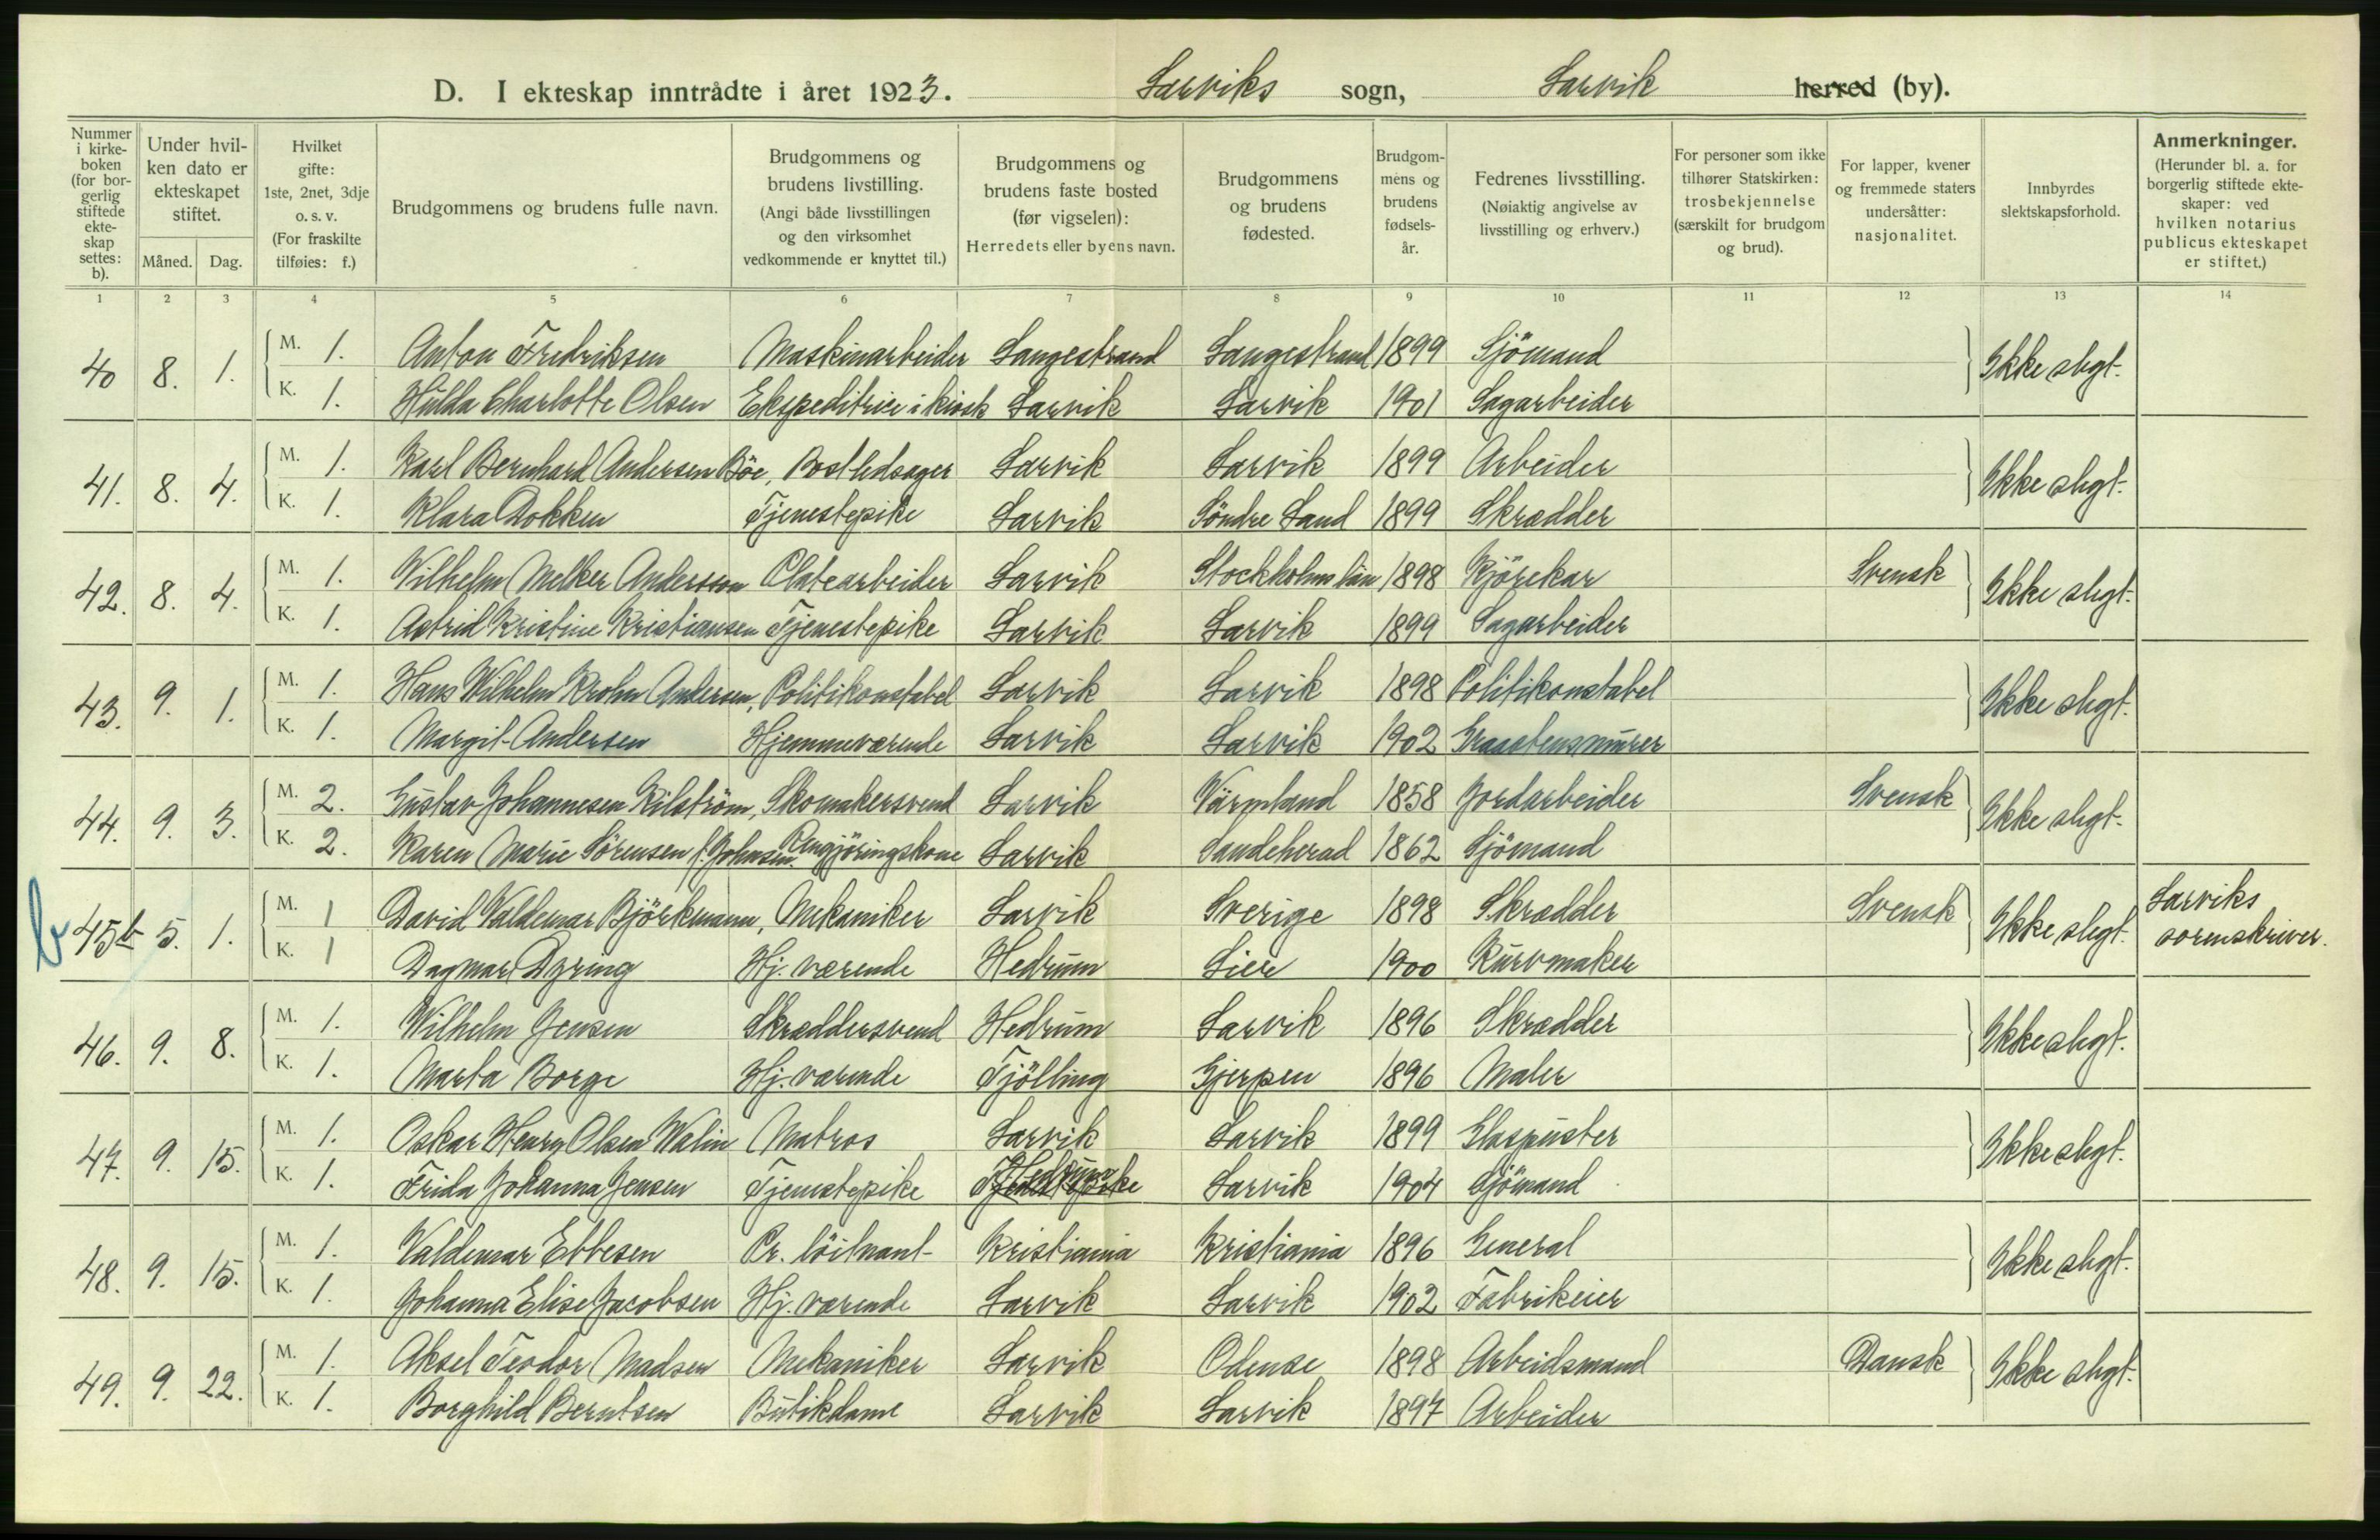 D. I ekteskap inntrådte i året 1923. Larviks sogn, Larvik herred (by).
Nummer i kirke-boken (for bor-gerlig stiftede ekte-skap settes: b).
Under hvil-ken dato er ekteskapet stiftet.
Måned. Dag.
Hvilket gifte: 1ste, 2net, 3dje o. s. v. (For fraskilte tilføies: f.)
Brudgommens og brudens fulle navn.
Brudgommens og brudens livstilling. (Angi både livsstillingen og den virksomhet vedkommende er knyttet til.)
Brudgommens og brudens faste bosted (før vigselen): Herredets eller byens navn.
Brudgommens og brudens fødested.
Brudgom-mens og brudens fødsels-år.
Fedrenes livsstilling. (Nøiaktig angivelse av livsstilling og erhverv.)
For personer som ikke tilhører Statskirken: trosbekjennelse (særskilt for brudgom og brud).
For lapper, kvener og fremmede staters undersåtter: nasjonalitet.
Innbyrdes slektskapsforhold.
Anmerkninger. (Herunder bl. a. for borgerlig stiftede ekte-skaper: ved hvilken notarius publicus ekteskapet er stiftet.)
1 2 3 4 5 6 7 8 9 10 11 12 13 14
40 8. 1. M. 1. Anton Fredriksen Maskinarbeider Langestrand Langestrand 1899 Sjömand Ikke slegt.
K. 1. Hulda Charlotte Olsen Ekspeditrice i kiosk Larvik Larvik 1901 Sagarbeider
41. 8. 4. M. 1. Karl Bernhard Andersen Böe, Postledsager Larvik Larvik 1899 Arbeider Ikke slegt.
K. 1. Klara Dokken Tjenestepike Larvik Söndre Land 1899 Skrædder
42. 8. 4. M. 1. Wilhelm Melker Andersson Platearbeider Larvik Stockholms län 1898 Kjörekar Svensk Ikke slegt.
K. 1. Astrid Kristine Kristiansen Tjenestepike Larvik Larvik 1899 Sagarbeider
43. 9. 1. M. 1. Hans Wilhelm Krohn Andersen, Politikonstabel Larvik Larvik 1898 Politikonstabel Ikke slegt.
K. 1. Margit Andersen Hjemmeværende Larvik Larvik 1902 Graastensmurer
44. 9. 3. M. 2. Gustav Johannesen Kilström, Skomakersvend Larvik Värmland 1858 Jordarbeider Svensk Ikke slegt.
K. 2. Karen Marie Sörensen f. Johnsen. Rengjöringskone Larvik Sandeherad 1862 Sjömand
b 45b 5. 1. M. 1 David Valdemar Björkmann, Mekaniker Larvik Sverige 1898 Skrædder Svensk Ikke slegt. Larviks sorenskriver.
K. 1 Dagmar Dyring Hj. værende Hedrum Lier 1900 Kurvmaker
46. 9. 8. M. 1. Wilhelm Jensen Skræddersvend Hedrum Larvik 1896 Skrædder Ikke slegt.
K. 1. Marta Borge Hj. værende Tjölling Gjerpen 1896 Maler
47. 9. 15. M. 1. Oskar Henry Olsen Walin Matros Larvik Larvik 1899 Glaspuster Ikke slegt.
K. 1. Frida Johanna Jensen Tjenestepike Hedrum Tjenestepike Larvik 1904 Sjömand
48. 9. 15. M. 1. Valdemar Ebbesen Pr. löitnant Kristiania Kristiania 1896 General Ikke slegt.
K. 1. Johanna Elise Jacobsen Hj. værende Larvik Larvik 1902 Fabrikeier
49. 9. 22. M. 1. Aksel Teodor Madsen Mekaniker Larvik Odense 1898 Arbeidsmand Dansk Ikke slegt.
K. 1. Borghild Berntsen Butikdame Larvik Larvik 1897 Arbeider